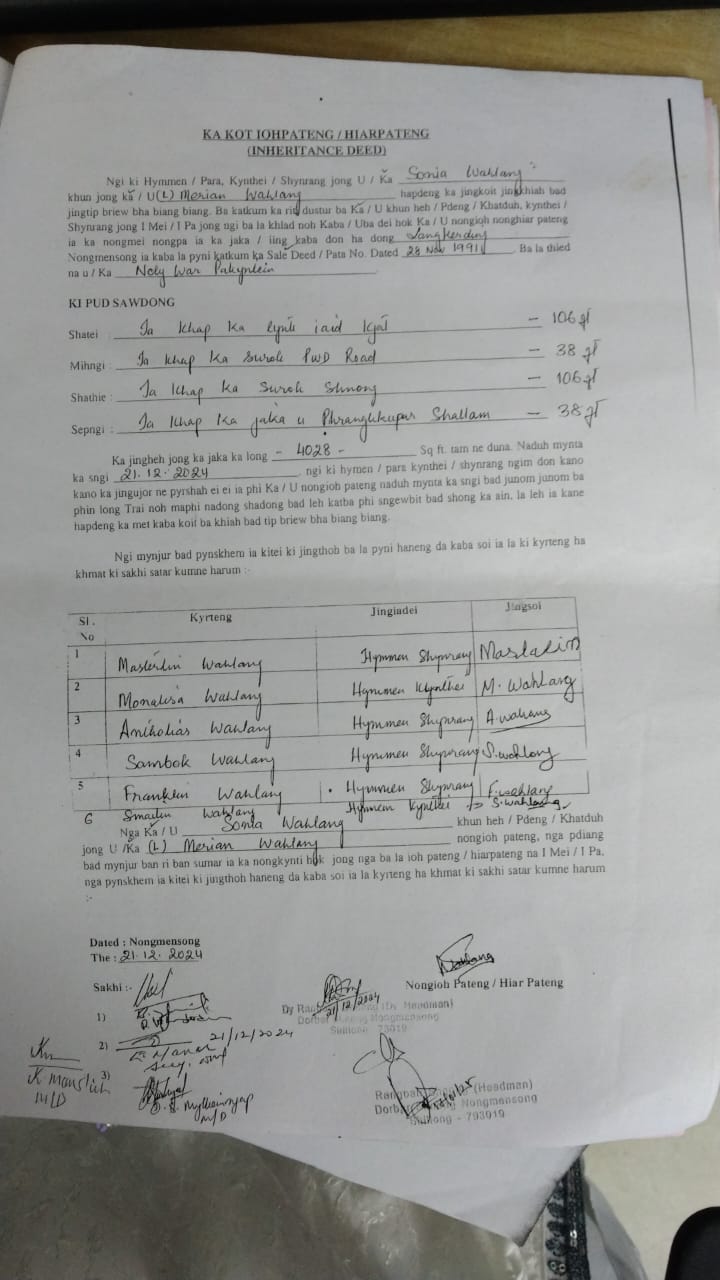 KA KOT IOHPATENG / HIARPATENG
(INHERITANCE DEED)
Ngi ki Hymmen / Para, Kynthei / Shynrang jong U / Ka Sonia Wahlang
khun jong ka / U (L) Merian Wahlang hapdeng ka jingkoit jingkhiah bad
jingtip briew bha biang biang. Ba katkum ka riti dustur ba Ka / U khun heh / Pdeng / Khatduh, kynthei /
Shynrang jong I Mei / I Pa jong ngi ba la khlad noh Kaba / Uba dei hok Ka / U nongioh nonghiar pateng
ia ka nongmei nongpa ia ka jaka / iing kaba don ha dong Langkerding
Nongmensong ia kaba la pyni katkum ka Sale Deed / Pata No. Dated 28 Nov 1991 . Ba la thied
na u / Ka Nely War Pakyntein
KI PUD SAWDONG
Shatei : Ia Khap Ka lynti iaid kjat – 106 ft
Mihngi : Ia Khap Ka Surok PWD Road – 38 ft
Shathie : Ia Khap Ka Surok Shnong – 106 ft
Sepngi : Ia Khap Ka jaka u Phrangkupar Shallam – 38 ft
Ka jingheh jong ka jaka ka long - 4028 - Sq ft. tam ne duna. Naduh mynta
ka sngi 21.12.2024 , ngi ki hymen / para kynthei / shynrang ngim don kano
kano ka jingujor ne pyrshah ei ei ia phi Ka / U nongioh pateng naduh mynta ka sngi bad junom junom ba
phin long Trai noh maphi nadong shadong bad leh katba phi sngewbit bad shong ka ain. Ia leh ia kane
hapdeng ka met kaba koit ba khiah bad tip briew bha biang biang.
Ngi mynjur bad pynskhem ia kitei ki jingthoh ba la pyni haneng da kaba soi ia la ki kyrteng ha
khmat ki sakhi satar kumne harum :-
Sl. No Kyrteng Jingiadei Jingsoi
1 Masterlin Wahlang Hymmen Shynrang Mastarlin
2 Monalisa Wahlang Hymmen Kynthei M. Wahlang
3 Anikolias Wahlang Hymmen Shynrang A.wahlang
4 Sambok Wahlang Hymmen Shynrang S.wahlang
5 Franklin Wahlang Hymmen Shynrang F.wahlang
6 Smailin Wahlang Hymmen Kynthei S.wahlang
Nga Ka / U Sonia Wahlang khun heh / Pdeng / Khatduh
jong U /Ka (L) Merian Wahlang nongioh pateng, nga pdiang
bad mynjur ban ri ban sumar ia ka nongkynti hok jong nga ba la ioh pateng / hiarpateng na I Mei / I Pa,
nga pynskhem ia kitei ki jingthoh haneng da kaba soi ia la kyrteng ha khmat ki sakhi satar kumne harum
:-
Dated : Nongmensong
The : 21.12.2024
Nongioh Pateng / Hiar Pateng
Sakhi :-
1)
21/12/2024
(Dy Headman)
Nongmensong
2) 21/12/2024
3)
(Headman)
Nongmensong
Shillong - 793019